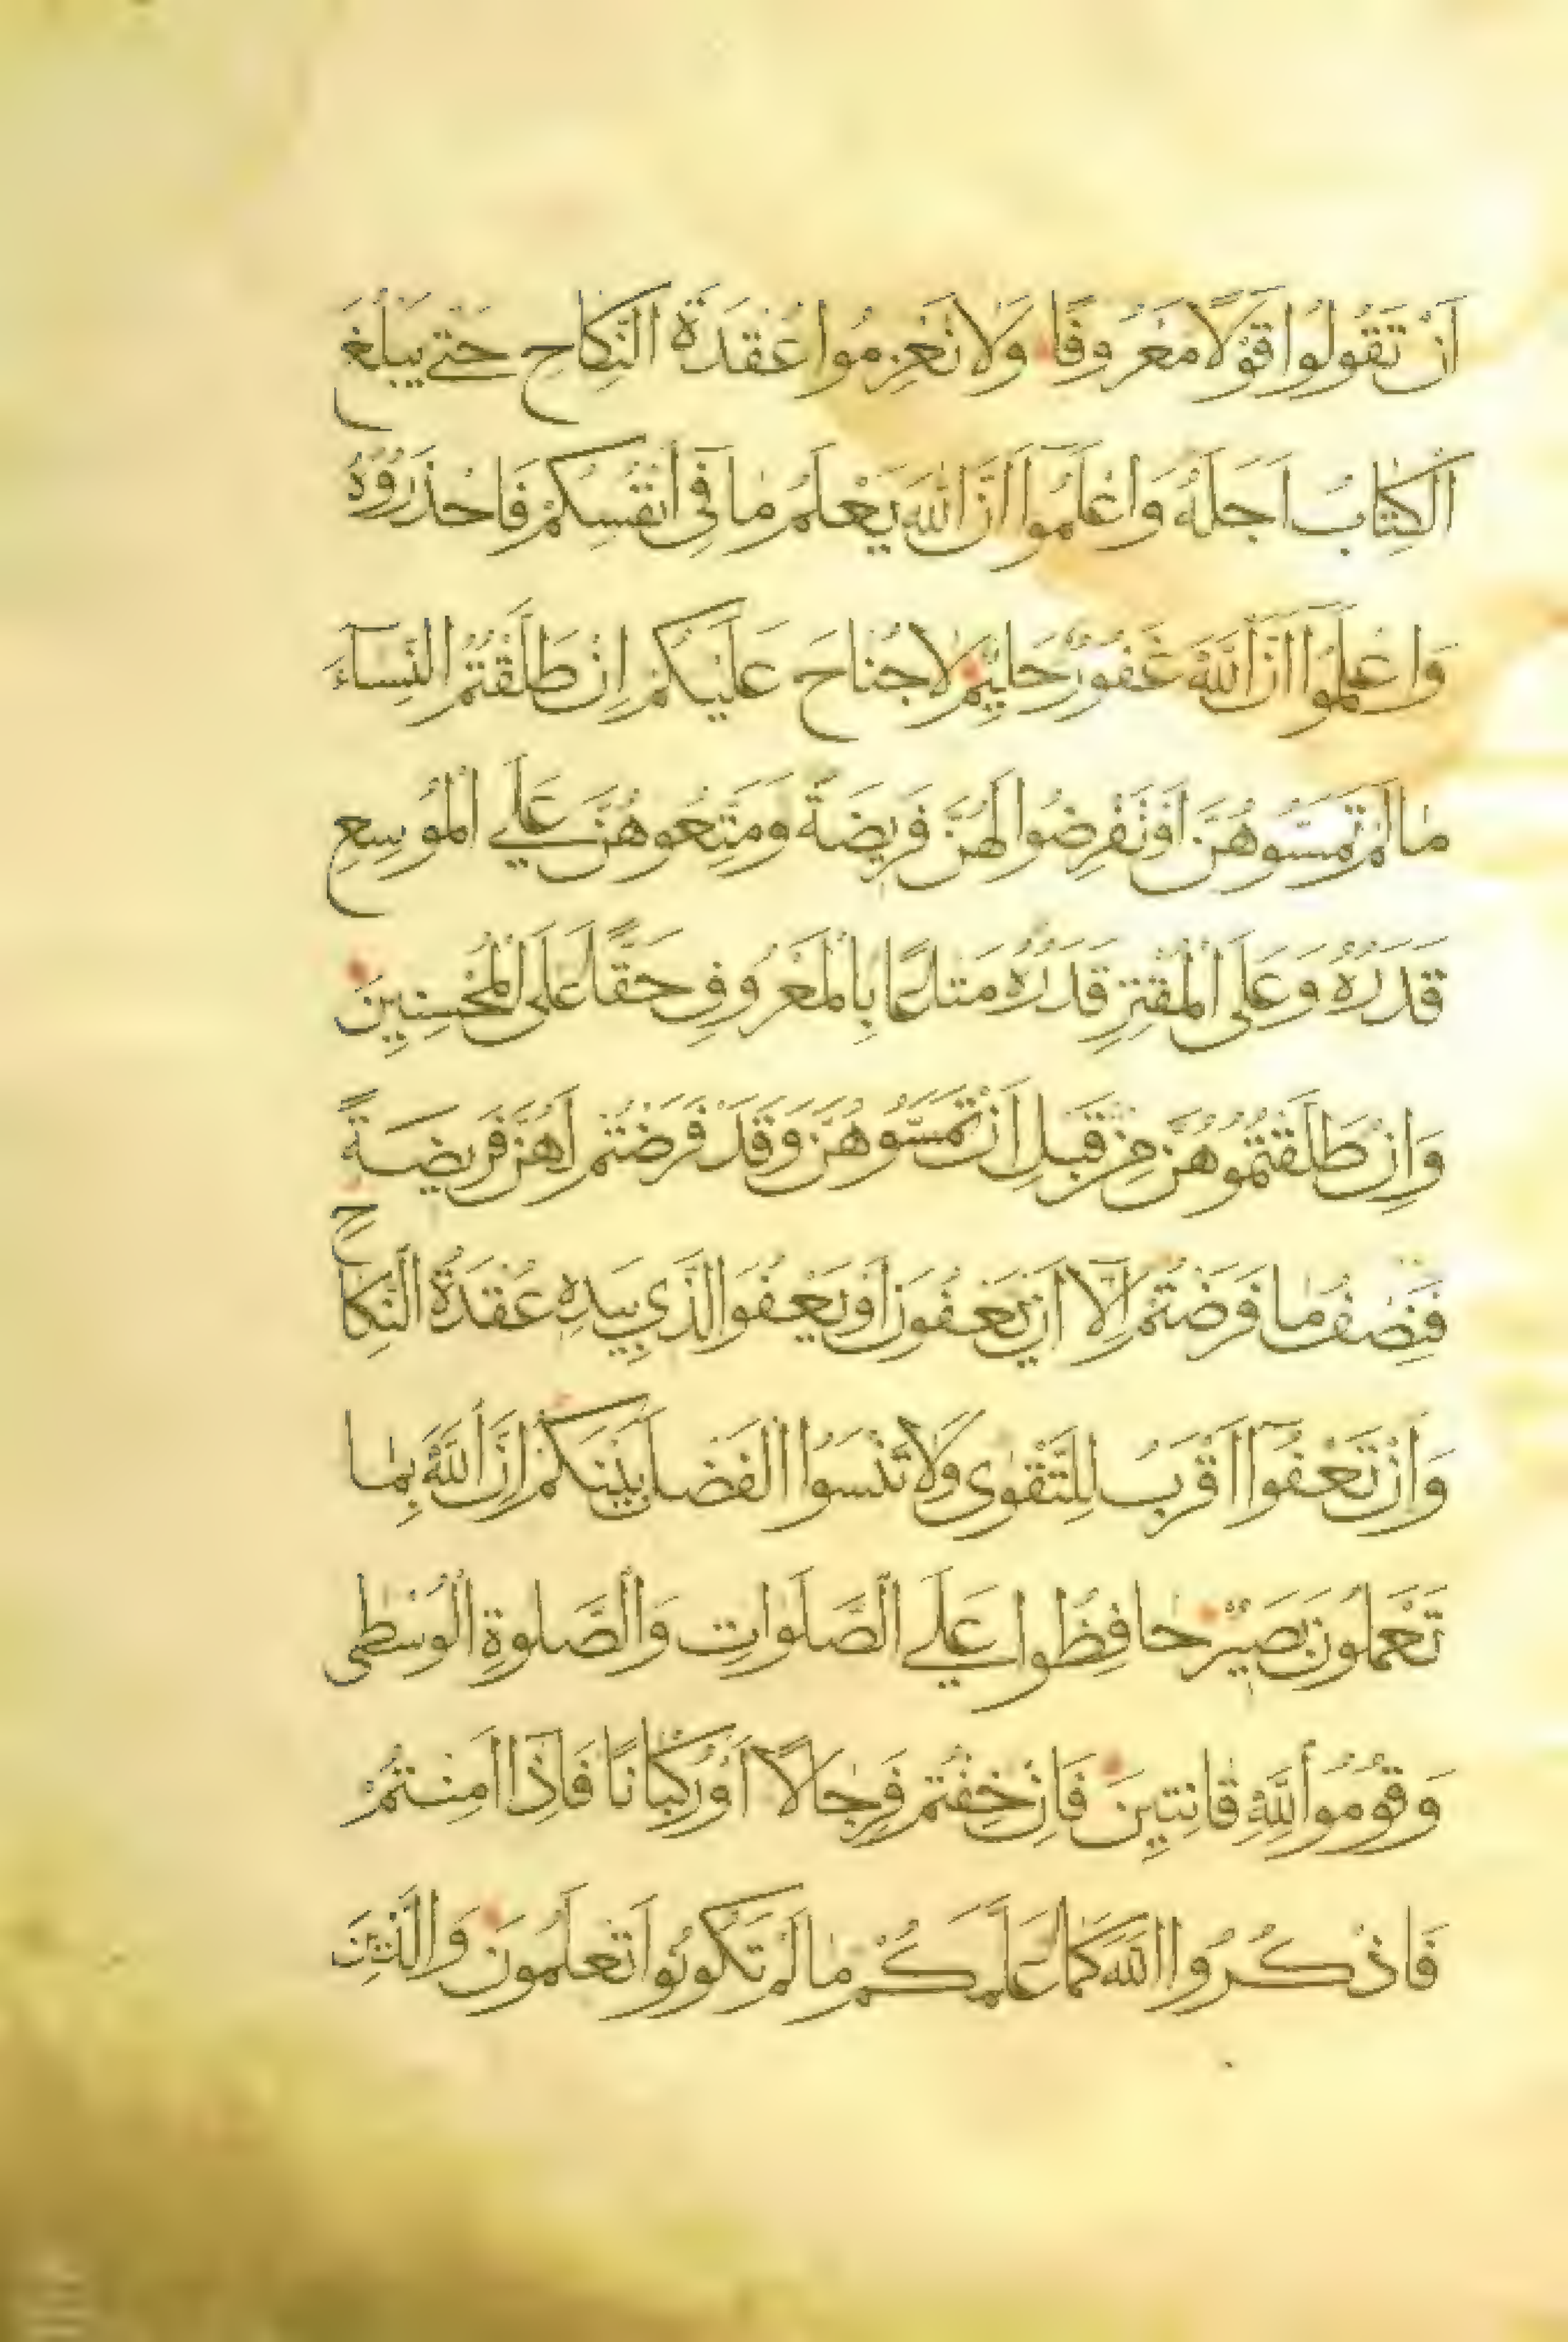 اَنْ تَقُولُوا قَوْلًا مَعْرُوفًا وَلَا تَعْزِمُوا عُقْدَةَ النِّكَاحِ حَتّٰى يَبْلُغَ
الْكِتَابُ اَجَلَهُ وَاعْلَمُوا اَنَّ اللّٰهَ يَعْلَمُ مَا فِي اَنْفُسِكُمْ فَاحْذَرُوهُ
وَاعْلَمُوا اَنَّ اللّٰهَ غَفُورٌ حَلِيمٌ لَا جُنَاحَ عَلَيْكُمْ اِنْ طَلَّقْتُمُ النِّسَآءَ
مَا لَمْ تَمَسُّوهُنَّ اَوْ تَفْرِضُوا لَهُنَّ فَرِيضَةً وَمَتِّعُوهُنَّ عَلَى الْمُوسِعِ
قَدَرُهُ وَعَلَى الْمُقْتِرِ قَدَرُهُ مَتَاعًا بِالْمَعْرُوفِ حَقًّا عَلَى الْمُحْسِنِينَ
وَاِنْ طَلَّقْتُمُوهُنَّ مِنْ قَبْلِ اَنْ تَمَسُّوهُنَّ وَقَدْ فَرَضْتُمْ لَهُنَّ فَرِيضَةً
فَنِصْفُ مَا فَرَضْتُمْ اِلَّآ اَنْ يَعْفُونَ اَوْ يَعْفُوَ الَّذِي بِيَدِهِ عُقْدَةُ النِّكَاحِ
وَاَنْ تَعْفُوٓا اَقْرَبُ لِلتَّقْوٰى وَلَا تَنْسَوُا الْفَضْلَ بَيْنَكُمْ اِنَّ اللّٰهَ بِمَا
تَعْمَلُونَ بَصِيرٌ حَافِظُوا عَلَى الصَّلَوَاتِ وَالصَّلٰوةِ الْوُسْطٰى
وَقُومُوا لِلّٰهِ قَانِتِينَ فَاِنْ خِفْتُمْ فَرِجَالًا اَوْ رُكْبَانًا فَاِذَآ اَمِنْتُمْ
فَاذْكُرُوا اللّٰهَ كَمَا عَلَّمَكُمْ مَا لَمْ تَكُونُوا تَعْلَمُونَ وَالَّذِينَ